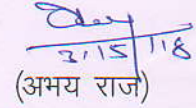 3/15/18
(अभय राज)